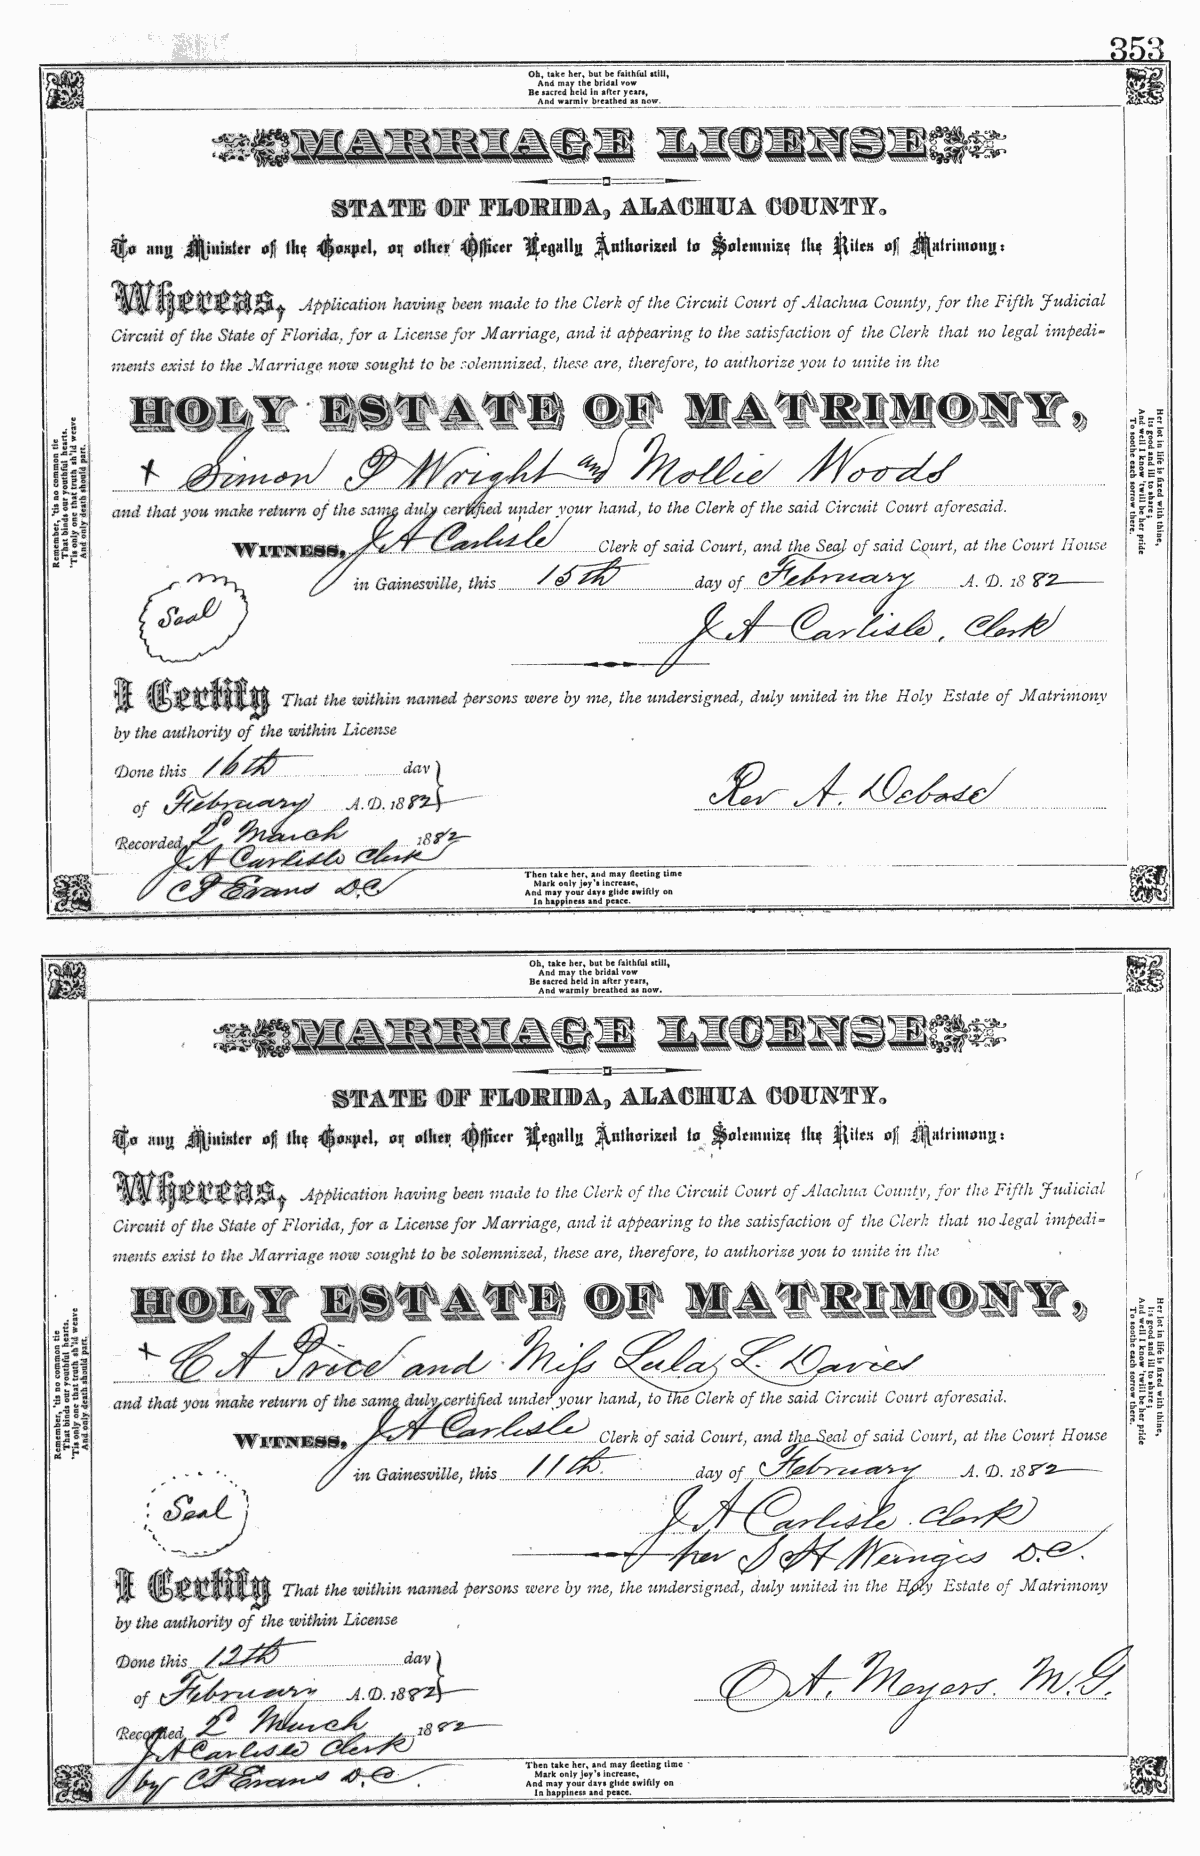 353
Oh, take her, but be faithful still,
And may the bridal vow
Be sacred held in after years,
And warmly breathed as now.
MARRIAGE LICENSE
STATE OF FLORIDA, ALACHUA COUNTY.
To any Minister of the Gospel, or other Officer Legally Authorized to Solemnize the Rites of Matrimony:
Whereas, Application having been made to the Clerk of the Circuit Court of Alachua County, for the Fifth Judicial
Circuit of the State of Florida, for a License for Marriage, and it appearing to the satisfaction of the Clerk that no legal impedi-
ments exist to the Marriage now sought to be solemnized, these are, therefore, to authorize you to unite in the
HOLY ESTATE OF MATRIMONY,
x Simon P Wright and Mollie Woods
and that you make return of the same duly certified under your hand, to the Clerk of the said Circuit Court aforesaid.
WITNESS, J A Carlisle Clerk of said Court, and the Seal of said Court, at the Court House
in Gainesville, this 15th day of February A. D. 1882
Seal
J A Carlisle, Clerk
I Certify That the within named persons were by me, the undersigned, duly united in the Holy Estate of Matrimony
by the authority of the within License
Done this 16th day
of February A. D. 1882
Rev A. Debose
Recorded 2d March 1882
J A Carlisle Clerk
C P Evans D.C
Then take her, and may fleeting time
Mark only joy's increase,
And may your days glide swiftly on
In happiness and peace.
Remember, 'tis no common tie
That binds our youthful hearts.
'Tis only one that truth sh'ld weave
And only death should part.
Her lot in life is fixed with thine,
Its good and ill to share;
And well I know 'twill be her pride
To soothe each sorrow there.
Oh, take her, but be faithful still,
And may the bridal vow
Be sacred held in after years,
And warmly breathed as now.
MARRIAGE LICENSE
STATE OF FLORIDA, ALACHUA COUNTY.
To any Minister of the Gospel, or other Officer Legally Authorized to Solemnize the Rites of Matrimony:
Whereas, Application having been made to the Clerk of the Circuit Court of Alachua County, for the Fifth Judicial
Circuit of the State of Florida, for a License for Marriage, and it appearing to the satisfaction of the Clerk that no legal impedi-
ments exist to the Marriage now sought to be solemnized, these are, therefore, to authorize you to unite in the
HOLY ESTATE OF MATRIMONY,
x C A Price and Miss Lula L. Davies
and that you make return of the same duly certified under your hand, to the Clerk of the said Circuit Court aforesaid.
WITNESS, J A Carlisle Clerk of said Court, and the Seal of said Court, at the Court House
in Gainesville, this 11th. day of February A. D. 1882
Seal
J A Carlisle Clerk
per S H Wienges D.C.
I Certify That the within named persons were by me, the undersigned, duly united in the Holy Estate of Matrimony
by the authority of the within License
Done this 12th day
of February A. D. 1882
O A. Meyers. M.G.
Recorded 2d March 1882
J A Carlisle Clerk
by C P Evans D.C.
Then take her, and may fleeting time
Mark only joy's increase,
And may your days glide swiftly on
In happiness and peace.
Remember, 'tis no common tie
That binds our youthful hearts.
'Tis only one that truth sh'ld weave
And only death should part.
Her lot in life is fixed with thine,
Its good and ill to share;
And well I know 'twill be her pride
To soothe each sorrow there.